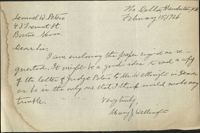 The Dells, 
February 15, 1926
Samuel W. Peters
43 Tremont St.
Boston, Mass.
Dear Sir:
I am enclosing the paper signed as re-
quested. It might be a good idea to send a copy
of the letter of Judge Peters to Mr. Wellington
as he is the only one that I think would make any
trouble.
Very truly,
Mary J. Wellington